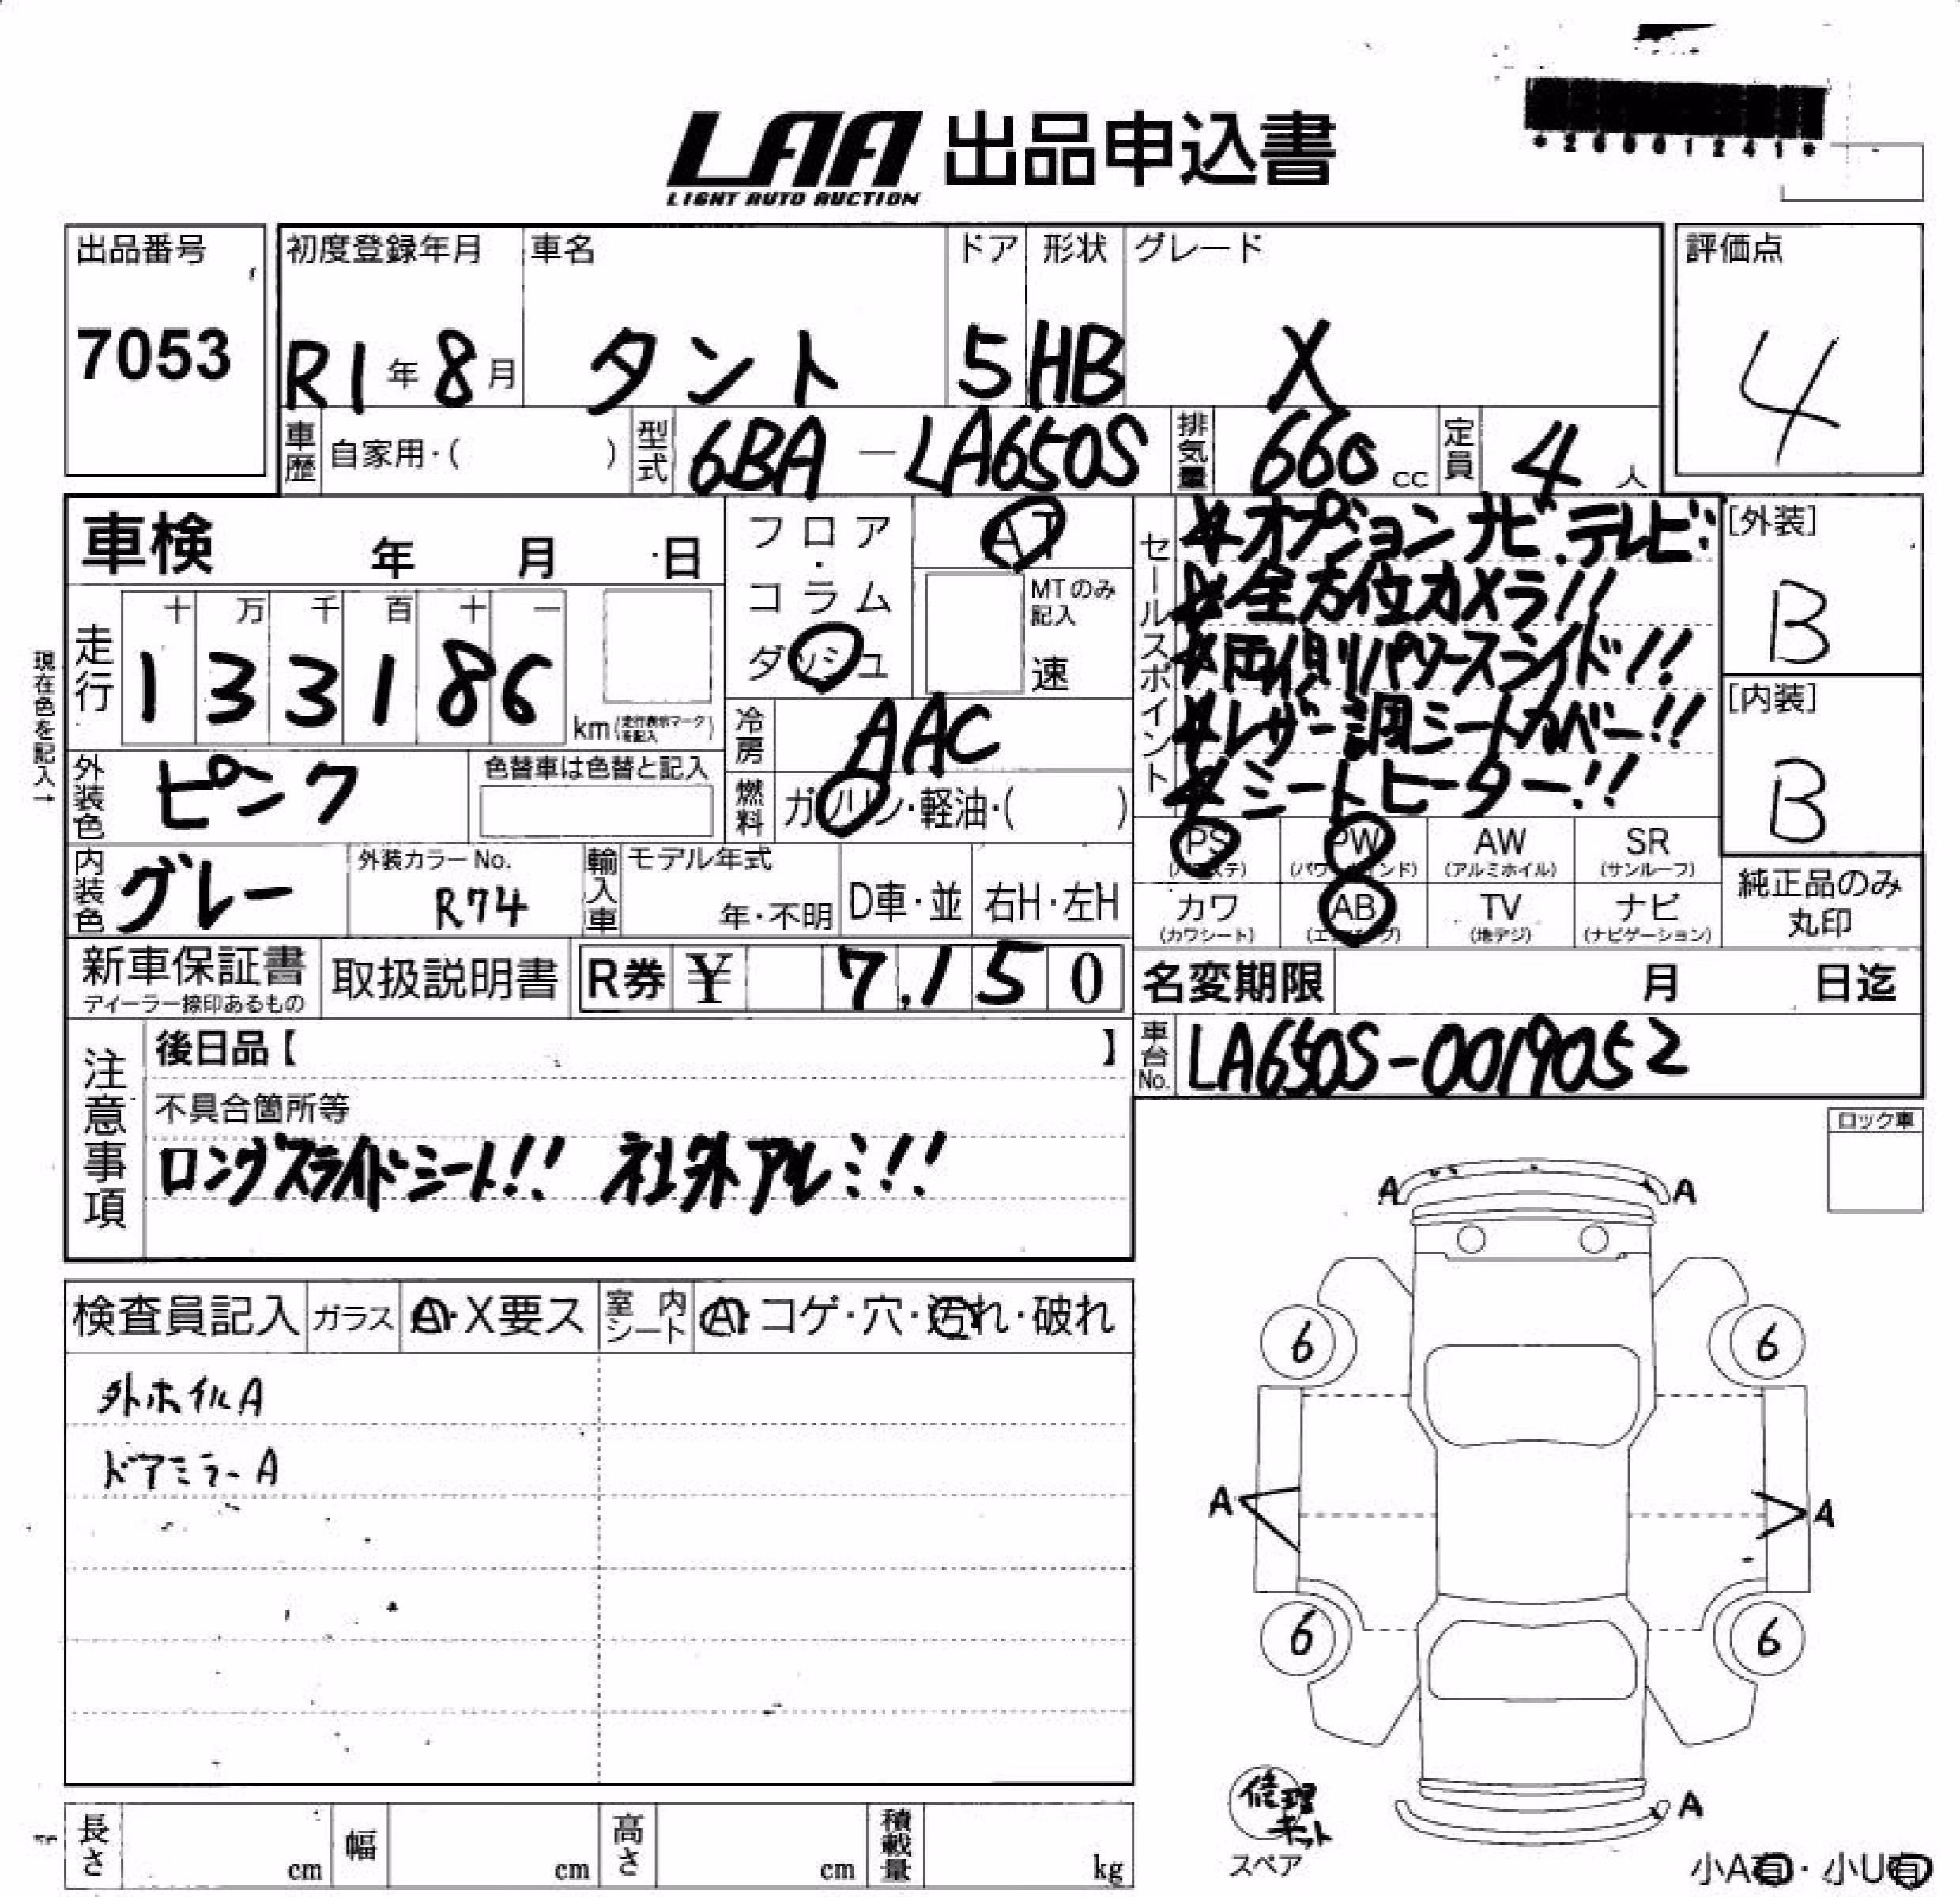 *26001241*
LAA 出品申込書
LIGHT AUTO AUCTION
出品番号 7053
初度登録年月 R1年8月
車名 タント
ドア 5
形状 HB
グレード X
評価点 4
車歴 自家用・( )
型式 6BA-LA650S
排気量 660cc
定員 4人
車検 年 月 日
走行 十 万 千 百 十 一
133186 km(走行表示マークを記入)
現在色を記入→
外装色 ピンク
色替車は色替と記入
内装色 グレー
外装カラーNo. R74
輸入車 モデル年式 年・不明 D車・並 右H・左H
フロア・コラム
ダッシュ
AT
MTのみ記入
速
冷房 AAC
燃料 ガソリン・軽油・( )
セールスポイント
★オプションナビ.テレビ!
★全方位カメラ!!
★両側パワースライド!!
★レザー調シートカバー!!
★シートヒーター!!
[外装] B
[内装] B
PS (パワステ) PW (パワーウインド) AW (アルミホイル) SR (サンルーフ)
カワ (カワシート) AB (エアバッグ) TV (地デジ) ナビ (ナビゲーション)
純正品のみ丸印
新車保証書 ディーラー捺印あるもの
取扱説明書
R券 ¥ 7,150
名変期限 月 日迄
車台No. LA650S-0019052
注意事項
後日品【 】
不具合箇所等
ロングスライドシート!! 社外アルミ!!
ロック車
検査員記入 ガラス A・X要ス 室内シート A・コゲ・穴・汚れ・破れ
外ホイルA
ドアミラーA
A A
6 6
A A
6 6
A
修理キット
スペア
小A有・小U有
長さ cm 幅 cm 高さ cm 積載量 kg